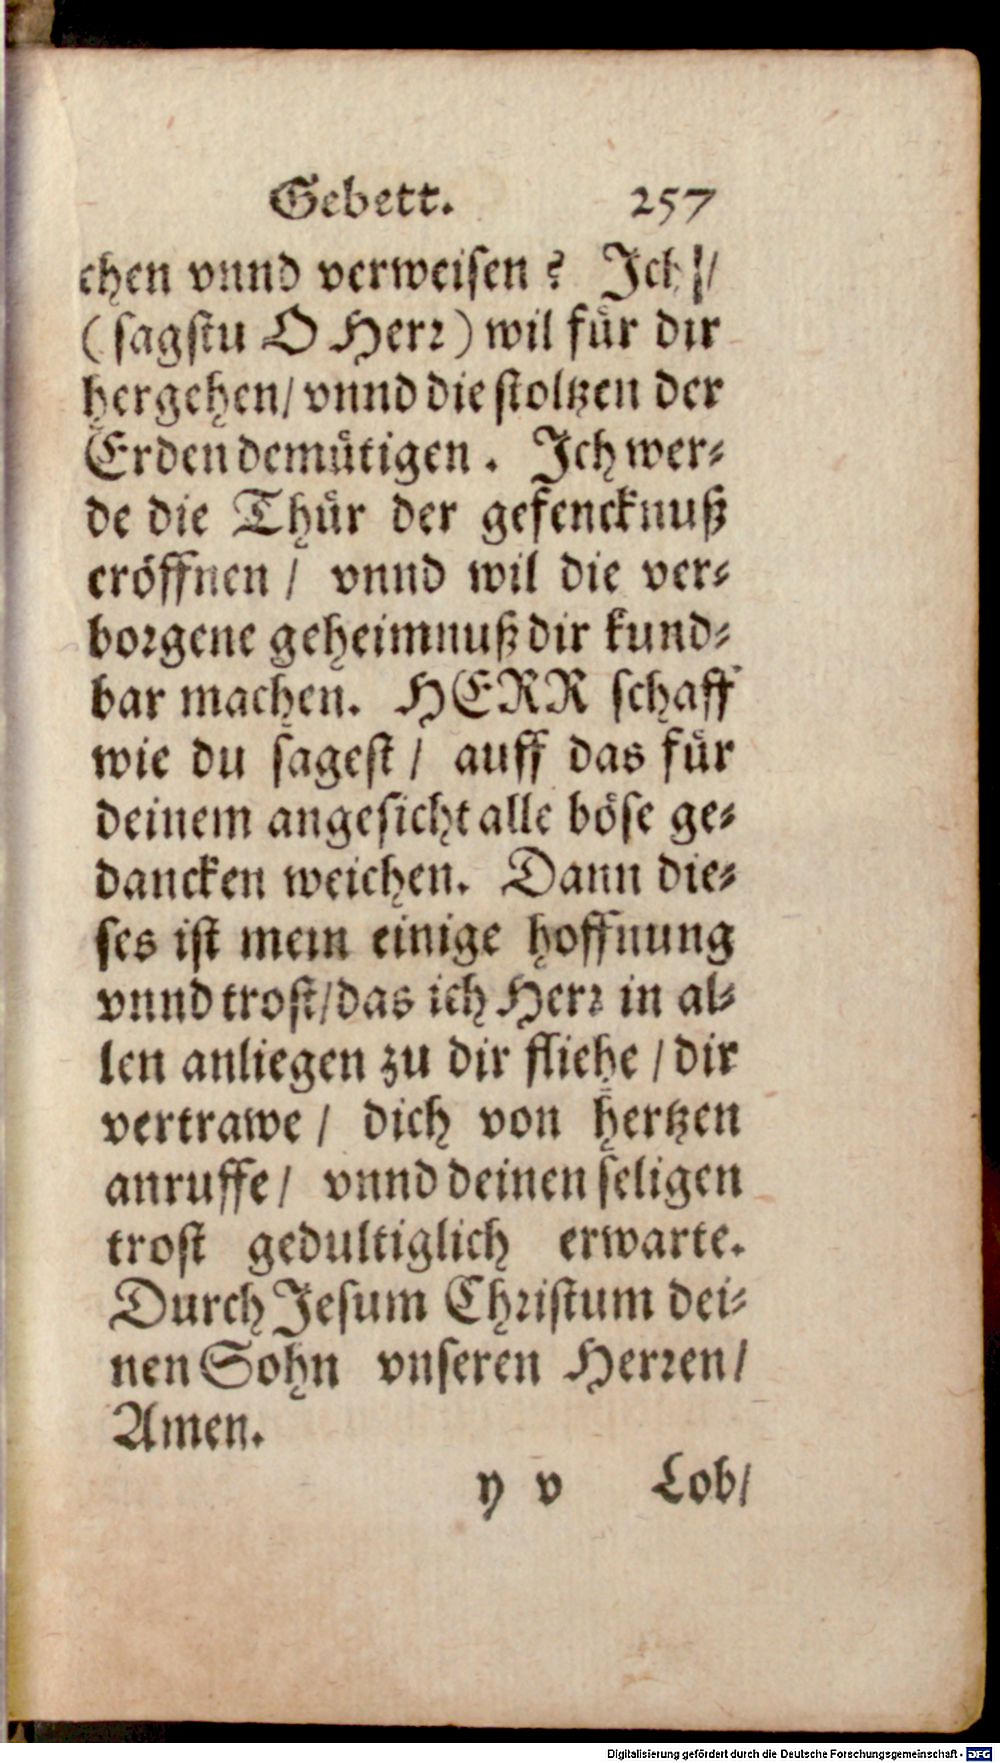 Gebett. 257
chen vnnd verweiſen? Ich /
(ſagſtu O Herr) wil fuͤr dir
hergehen/ vnnd die ſtoltzen der
Erden demuͤtigen. Ich wer-
de die Thuͤr der gefencknuß
eroͤffnen / vnnd wil die ver-
borgene geheimnuß dir kund-
bar machen. HERR ſchaff
wie du ſageſt / auff das fuͤr
deinem angeſicht alle boͤſe ge-
dancken weichen. Dann die-
ſes iſt mein einige hoffnung
vnnd troſt/ das ich Herr in al-
len anliegen zu dir fliehe / dir
vertrawe / dich von hertzen
anruffe / vnnd deinen ſeligen
troſt gedultiglich erwarte.
Durch Jeſum Chriſtum dei-
nen Sohn vnſeren Herren/
Amen.
y v Lob/
Digitalisierung gefördert durch die Deutsche Forschungsgemeinschaft - DFG